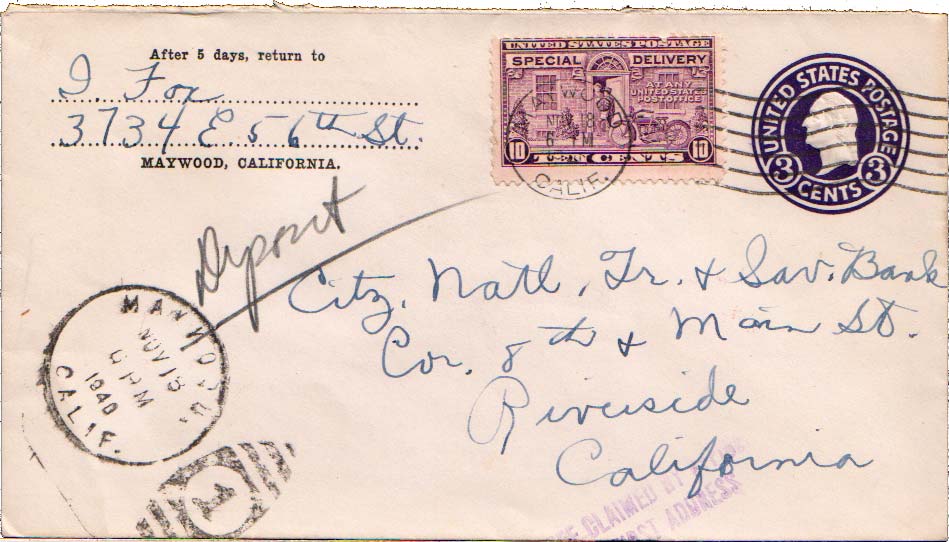 After 5 days, return to
I. Fox
3734 E. 56th St.
MAYWOOD, CALIFORNIA.
UNITED STATES POSTAGE
SPECIAL DELIVERY
AT ANY
UNITED STATES
POST OFFICE
10 TEN CENTS 10
MAYWOOD
NOV 18
6 PM
CALIF.
UNITED STATES POSTAGE
3 CENTS 3
Deposit
City. Natl. Tr. & Sav. Bank
Cor. 8th & Main St.
Riverside
California
MAYWOOD
NOV 18
6 PM
1940
CALIF.
1
CLAIMED BY
ADDRESS